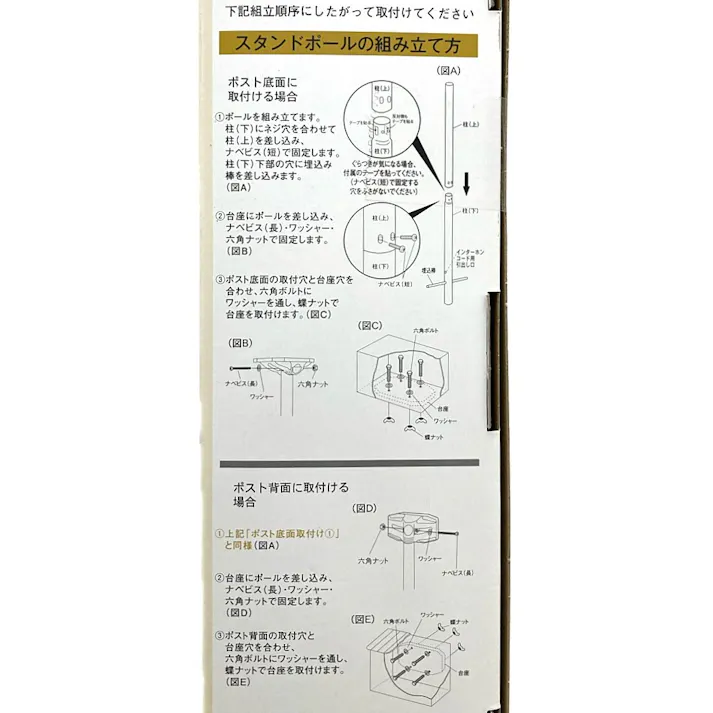 下記組立順序にしたがって取付けてください
スタンドポールの組み立て方
ポスト底面に
取付ける場合
①ポールを組み立てます。
柱(下)にネジ穴を合わせて
柱(上)を差し込み、
ナベビス(短)で固定します。
柱(下)下部の穴に埋込み
棒を差し込みます。
(図A)
②台座にポールを差し込み、
ナベビス(長)・ワッシャー・
六角ナットで固定します。
(図B)
③ポスト底面の取付穴と台座穴を
合わせ、六角ボルトに
ワッシャーを通し、蝶ナットで
台座を取付けます。(図C)
(図A)
柱(上)
テープを貼る
反対側も
テープを貼る
柱(下)
ぐらつきが気になる場合、
付属のテープを貼ってください。
(ナベビス(短)で固定する
穴をふさがないでください)
柱(上)
柱(下)
ナベビス(短)
柱(上)
柱(下)
インターホン
コード用
引出し口
埋込棒
(図B)
ナベビス(長)
ワッシャー
六角ナット
(図C)
六角ボルト
台座
ワッシャー
蝶ナット
ポスト背面に取付ける
場合
①上記「ポスト底面取付け①」
と同様(図A)
②台座にポールを差し込み、
ナベビス(長)・ワッシャー・
六角ナットで固定します。
(図D)
③ポスト背面の取付穴と
台座穴を合わせ、
六角ボルトにワッシャーを通し、
蝶ナットで台座を取付けます。
(図E)
(図D)
六角ナット
ワッシャー
ナベビス(長)
(図E)
六角ボルト
ワッシャー
蝶ナット
台座